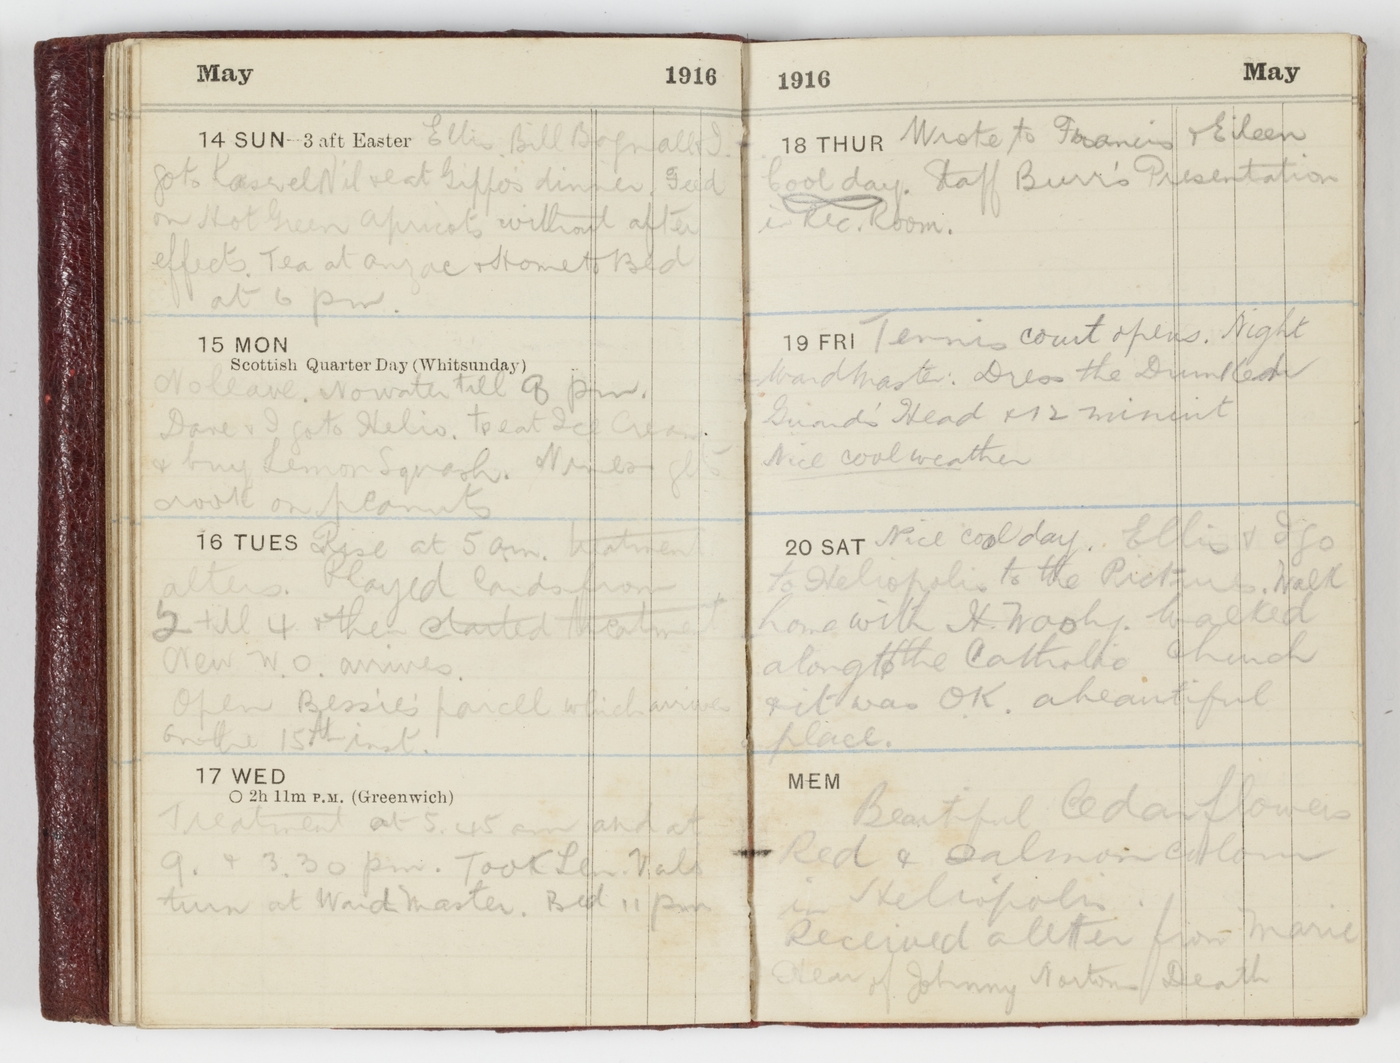 May 1916
14 SUN–3 aft Easter Ellis, Bill Bagnall & I
go to Kasr el Nil & eat Giffo's dinner. Feed
on Hot Green apricots without after
effects. Tea at anzac & Home to Bed
at 6 pm.
15 MON
Scottish Quarter Day (Whitsunday)
No leave. No water till 8 pm.
Dave & I go to Helio. to eat Ice Cream
& buy Lemon Squash. gets
crook on peanuts
16 TUES Rise at 5 am. treatment
alters. Played Cards from
2 till 4 & then started treatment
New W.O. arrives.
Open Bessie's parcel which arrives
on the 15th inst.
17 WED
○ 2h 11m P.M. (Greenwich)
Treatment at 5.45 am and at
9. & 3.30 pm. Took Len Vals
turn at Ward Master. Bed 11 pm
1916 May
18 THUR Wrote to Francis & Eileen
Cool day. Staff Burr's Presentation
in Rec. Room.
19 FRI Tennis court opens. Night
Ward Master. Dress the Drunken
Guard's Head & 12 
Nice cool weather
20 SAT Nice cool day. Ellis & I go
to Heliopolis to the Pictures. Walk
home with H. Walked
along to the Catholic Church
& it was OK. a beautiful
place.
MEM
Beautiful Cedar flowers
Red & Salmon colour
in Heliopolis.
Received a letter from Marie
Hear of Johnny Nortons Death